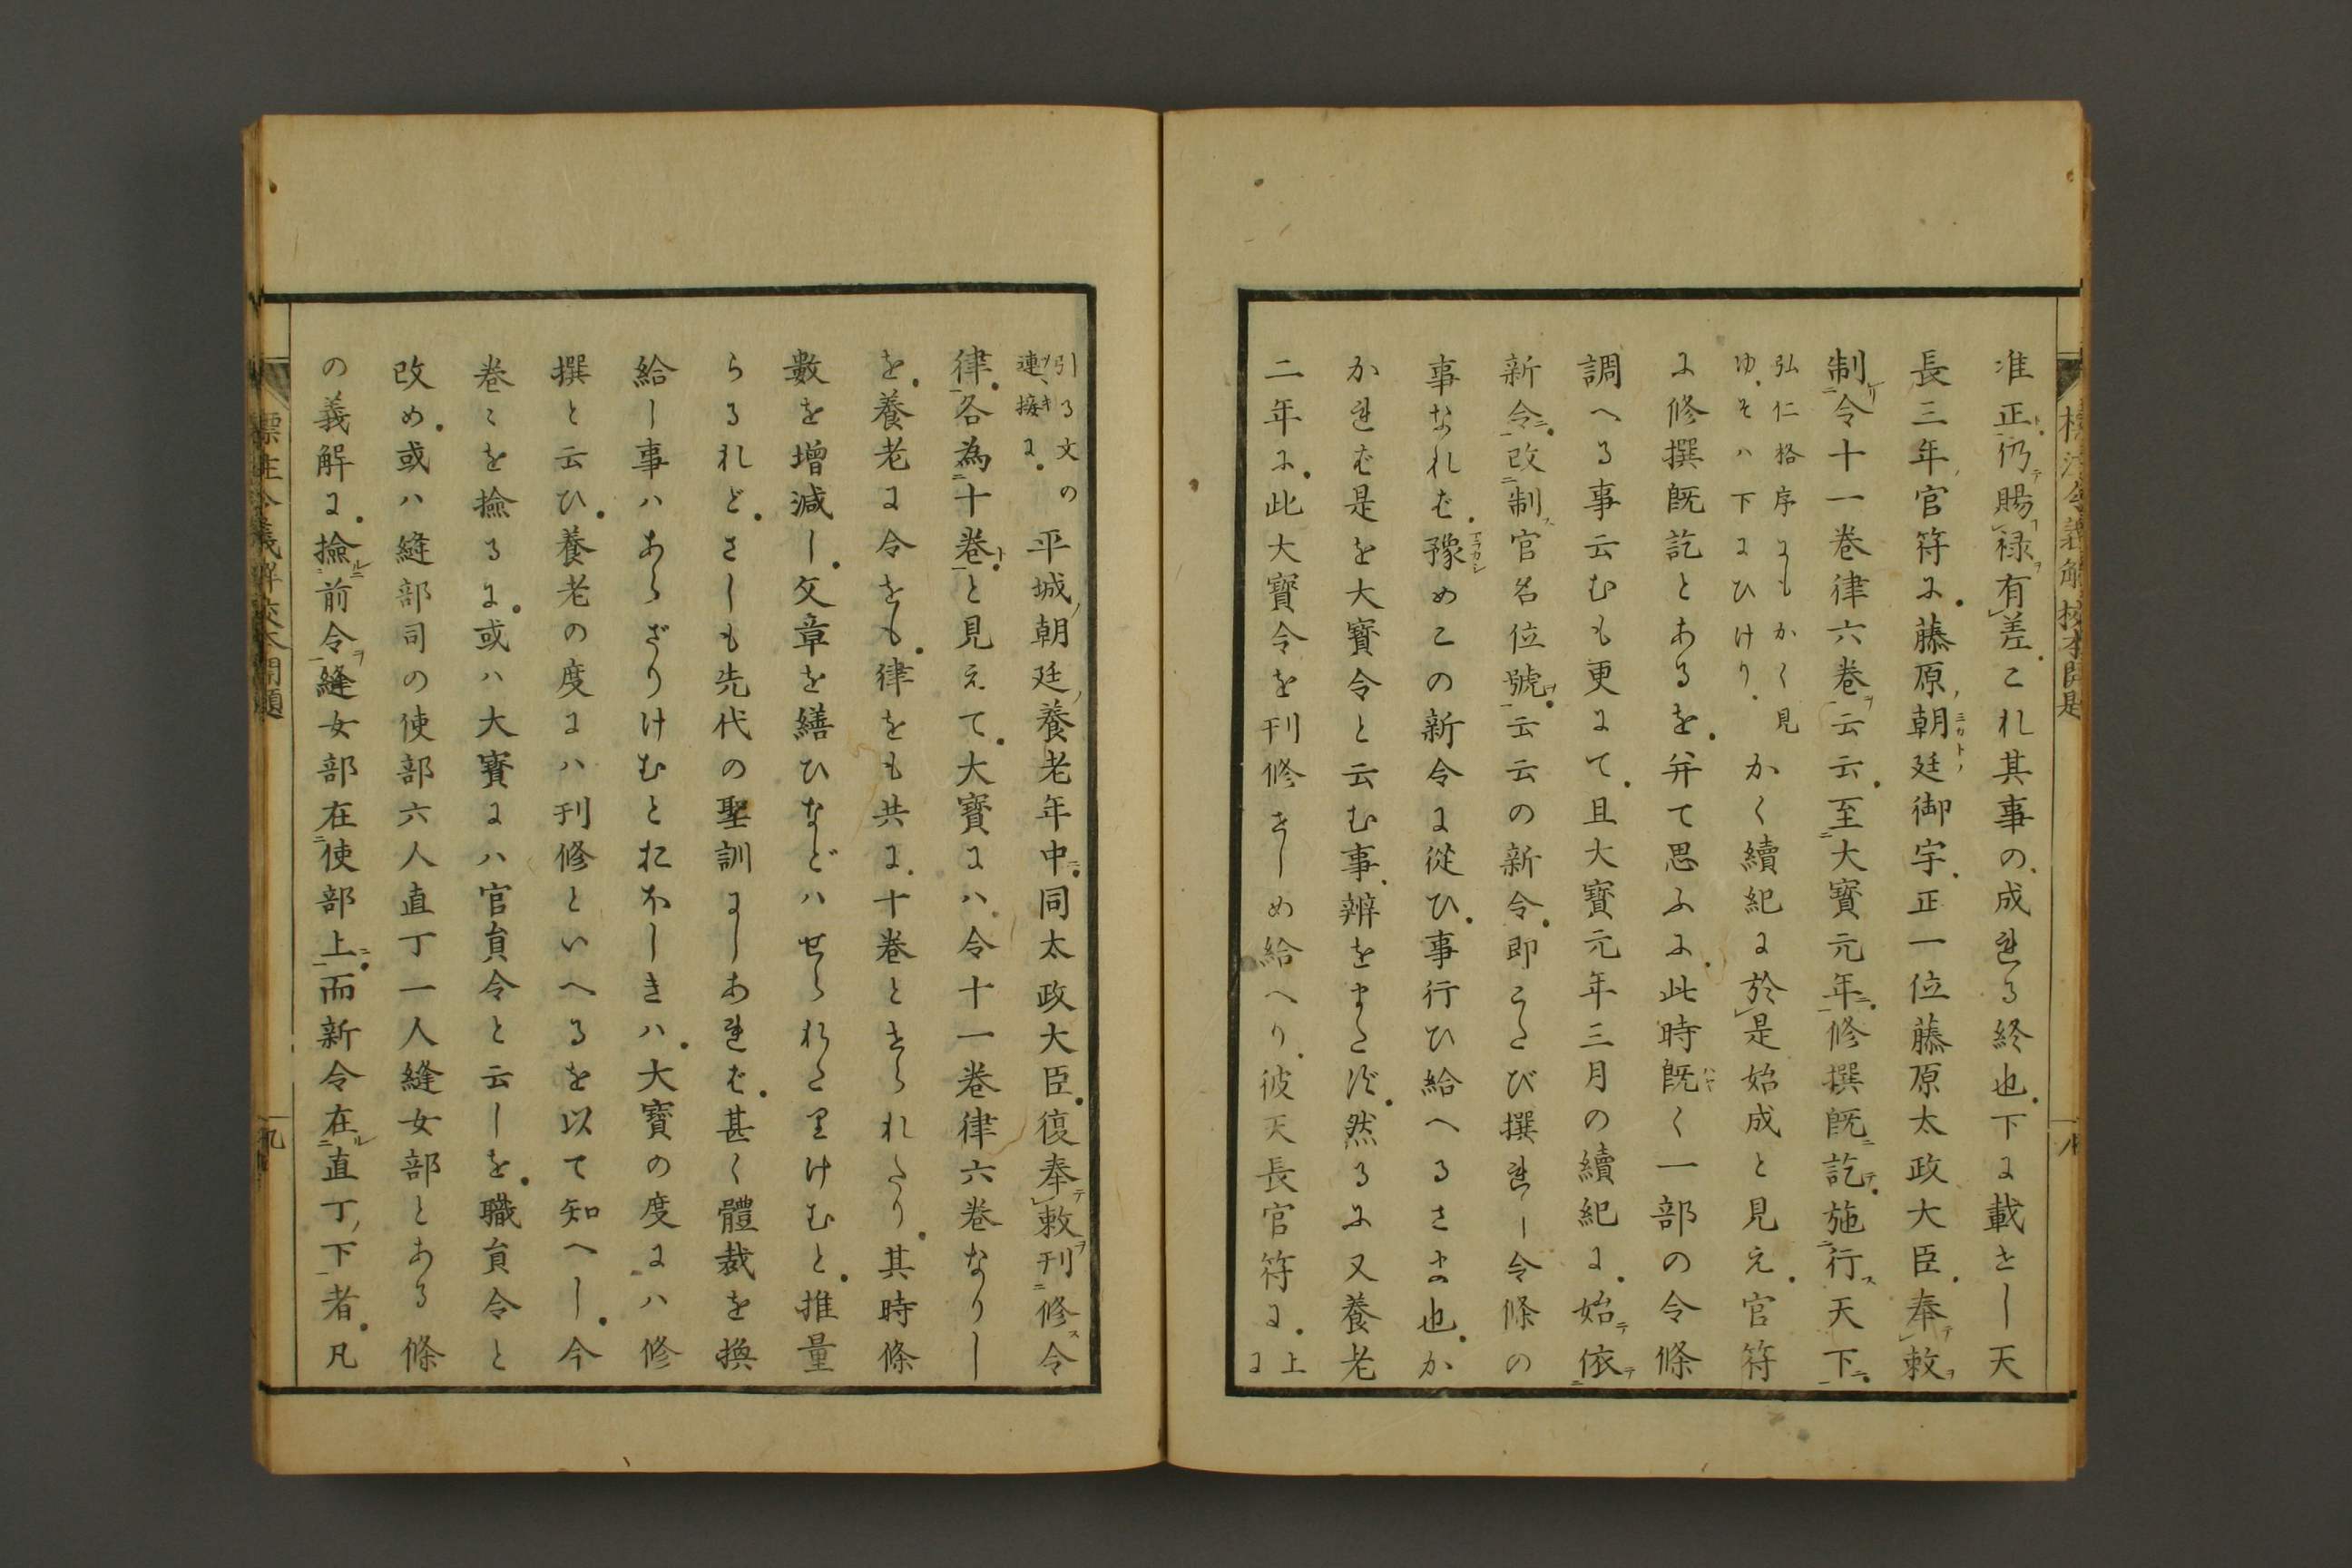 准正仍賜禄有差これ其事の成れる終也下に載せし天
長三年官符に藤原朝廷御宇正一位藤原太政大臣奉敕
制令十一巻律六巻云云至大寶元年修撰既訖施行天下
弘仁格序にもかく見
ゆそハ下にひけり
かく續紀に於是始成と見え官符
に修撰既訖とあるを弁て思ふに此時既く一部の令條
調へる事云むも更にて且大寶元年三月の續紀に始依
新令改制官名位號云云の新令即こたび撰れし令條の
事なれば豫めこの新令に從ひ事行ひ給へるさま也か
かれば是を大寶令と云む事辨をまたず然るに又養老
二年に此大寶令を刊修せしめ給へり彼天長官符に上に
引る文の
連接に
平城朝廷養老年中同太政大臣復奉敕刊修令
律各為十巻と見えて大寶にハ令十一巻律六巻なりし
を養老に令をも律をも共に十巻とせられたり其時條
數を増減し文章を繕ひなどハせられたりけむと推量
らるれどさしも先代の聖訓にしあれば甚く體裁を換
給し事ハあらざりけむとおほしきハ大寶の度にハ修
撰と云ひ養老の度にハ刊修といへるを以て知へし今
巻〻を撿るに或ハ大寶にハ官負令と云しを職負令と
改め或ハ縫部司の使部六人直丁一人縫女部とある條
の義解に撿前令縫女部在使部上而新令在直丁下者凡
標注令義解校本開題
八
標注令義解校本開題
九